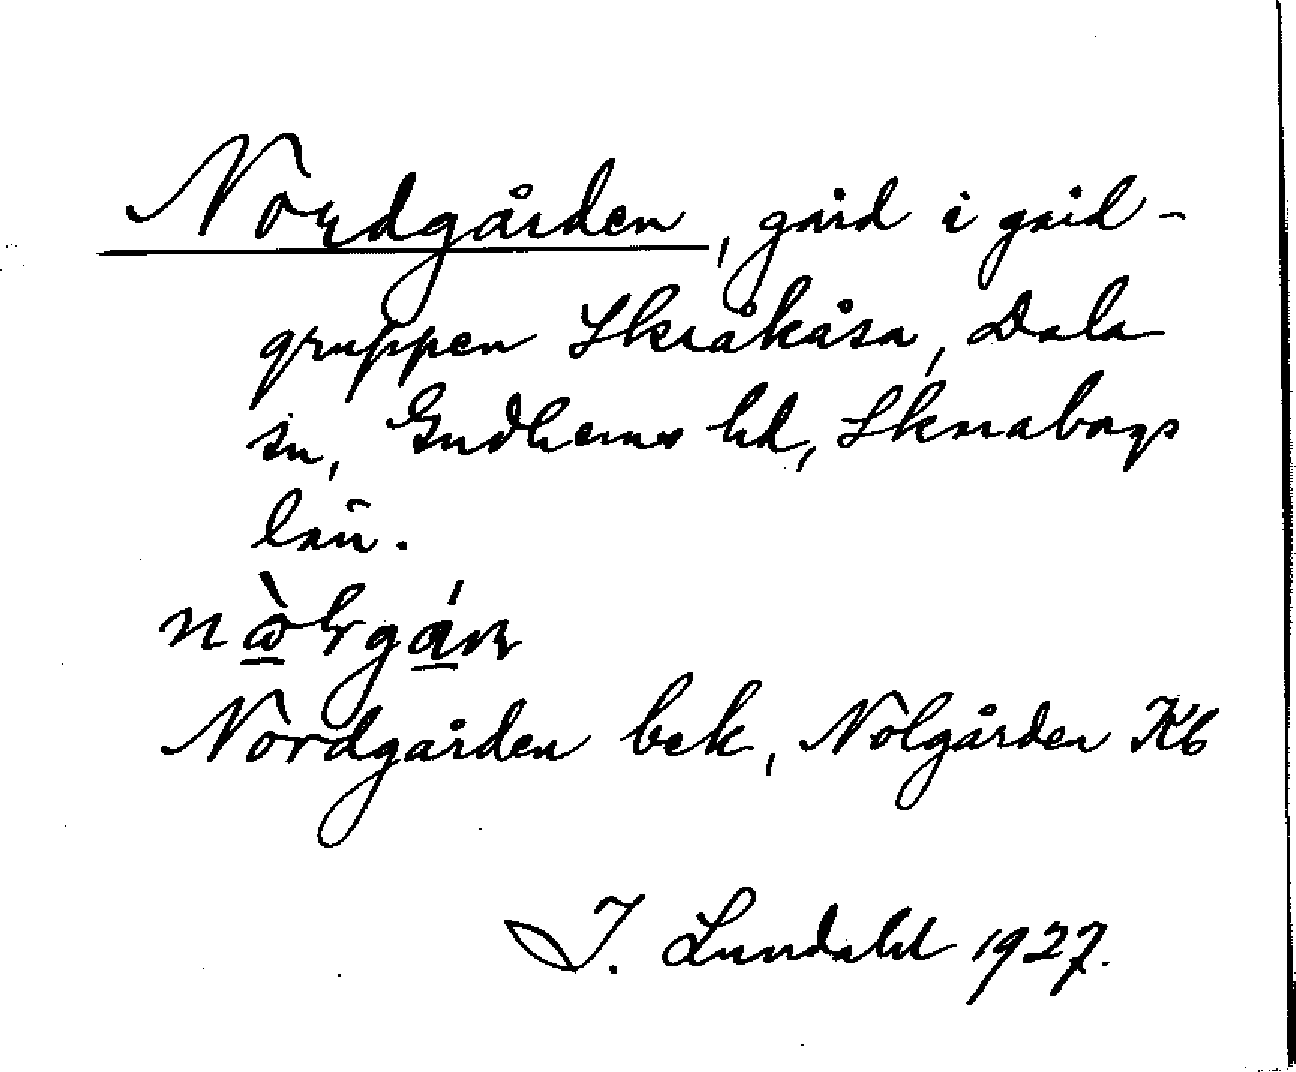 Nordgården, gård i gård-
gruppen Skråkåsa, Dala
sn, Gudhems hd, Skaraborgs
län.
Nordgården bek, Nolgården Kb
I. Lundahl 1927.